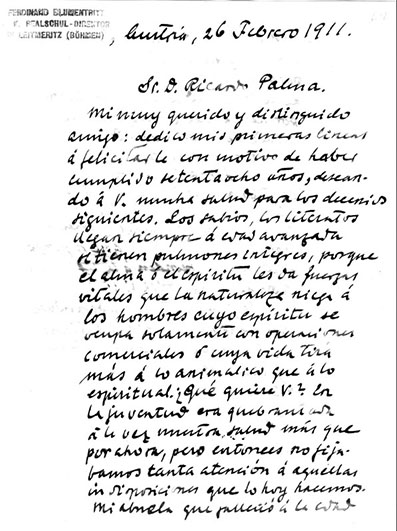 FERDINAND BLUMENTRITT
K. REALSCHUL-DIREKTOR
LEITMERITZ (BÖHMEN)
, Austria, 26 Febrero 1911.
Sr. D. Ricardo Palma.
Mi muy querido y distinguido
amigo: dedico mis primeras lineas
á felicitarle con motivo de haber
cumplido setentaocho años, desean-
do á V. mucha salud para los decenios
siguientes. Los sabios, los literatos
llegan siempre á edad avanzada
si tienen pulmones íntegros, porque
el alma ó el espíritu les da fuerzas
vitales que la naturaleza niega á
los hombres cuyo espíritu se
ocupa solamente con operaciones
comerciales ó cuya vida tira
más á lo animalico que á lo
espiritual. ¿Qué quiere V.? En
la juventud era quebrantada
á la vez nuestra salud más que
por ahora, pero entonces no fijá-
bamos tanta atención á aquellas
indisposiciones que lo hoy hacemos.
Mi abuela que falleció á la edad